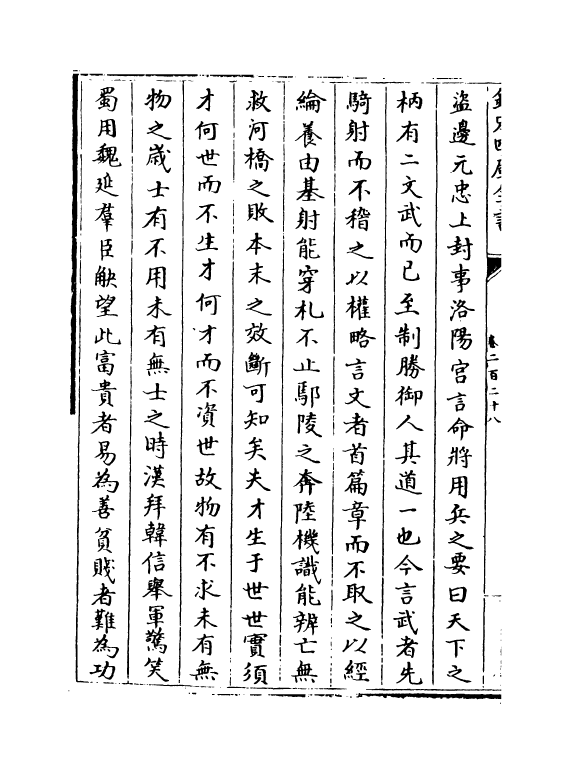 欽定四庫全書
卷二百二十八
盜邊元忠上封事洛陽宮言命將用兵之要曰天下之
柄有二文武而已至制勝御人其道一也今言武者先
騎射而不稽之以權略言文者首篇章而不取之以經
綸養由基射能穿札不止鄢陵之奔陸機識能辨亡無
救河橋之敗本末之效斷可知矣夫才生于世世實須
才何世而不生才何才而不資世故物有不求未有無
物之嵗士有不用未有無士之時漢拜韓信舉軍驚笑
蜀用魏延羣臣觖望此富貴者易為善貧賤者難為功